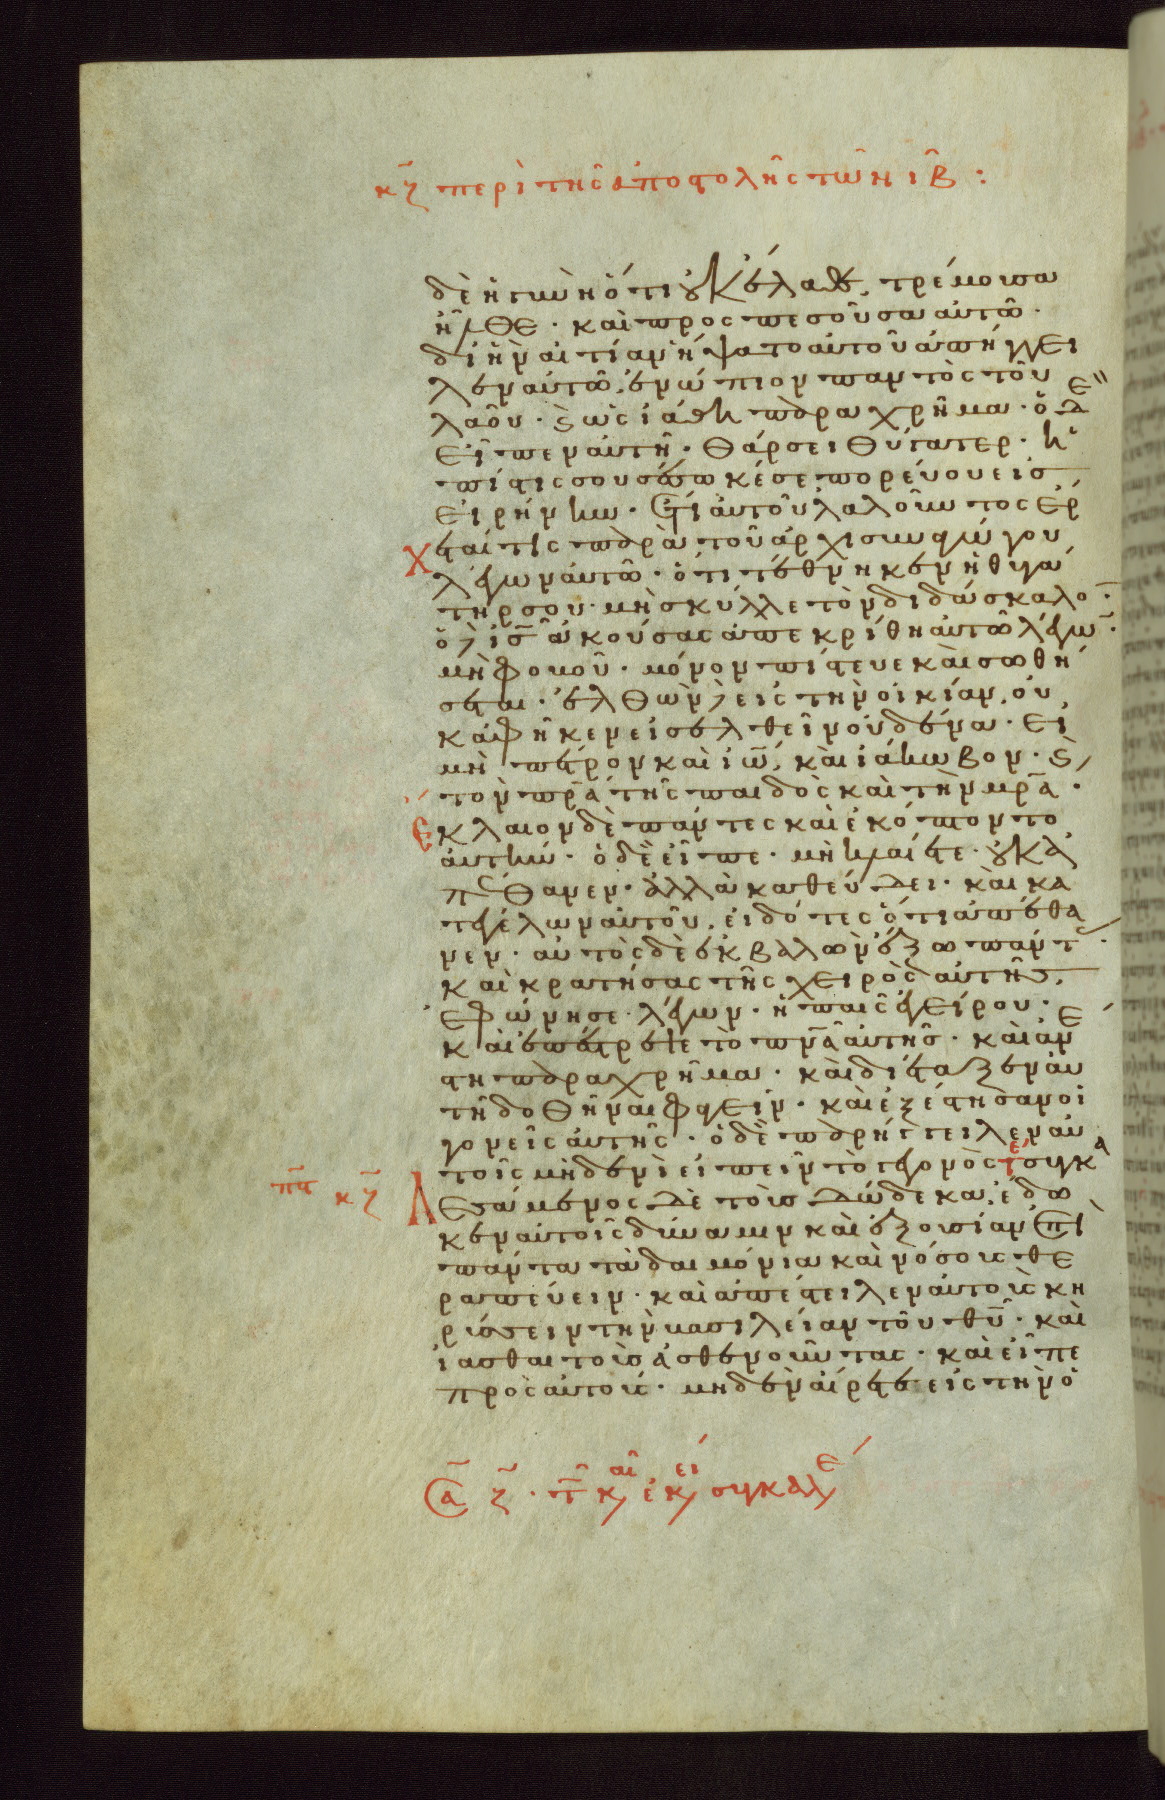 κζ περὶ τῆς ἀποστολῆς τῶν ιβ :
δὲ ἡ γυνὴ ὅτι οὐκ ἔλαθε, τρέμουσα
ἦλθε · καὶ προσπεσοῦσα αὐτῶ ·
δι ἣν αἰτίαν ἥψατο αὐτοῦ ἀπήγγει
λεν αὐτῶ, ἐνώπιον παντὸς τοῦ
λαοῦ · καὶ ὡς ἰάθη παραχρῆμα · ὁ δὲ
εἶπεν αὐτῆ · θάρσει θύγατερ · ἡ
πίστις σου σέσωκέ σε πορεύου εἰς
εἰρήνην · ἔτι αὐτοῦ λαλοῦντος ἔρ
χεταί τις παρὰ τοῦ ἀρχισυναγώγου
λέγων αὐτῶ · ὅτι τέθνηκεν ἡ θυγά
τηρ σου · μὴ σκύλλε τὸν διδάσκαλον ·
ὁ δὲ ις ἀκούσας ἀπεκρίθη αὐτῶ λέγων ·
μὴ φοβοῦ · μόνον πίστευε καὶ σωθή
σεται · ἐλθὼν δὲ εἰς τὴν οἰκίαν, οὐ
κ ἀφῆκεν εἰσελθεῖν οὐδένα · εἰ
μὴ πέτρον καὶ ιω, καὶ ἰάκωβον · καὶ
τὸν πρα τῆς παιδὸς καὶ τὴν μρα ·
ἔκλαιον δὲ πάντες καὶ ἐκόπτοντο
αὐτήν · ὁ δὲ εἶπε · μὴ κλαίετε · οὐκ ἀ
πέθανεν · ἀλλὰ καθεύδει · καὶ κα
τεγέλων αὐτοῦ, εἰδότες ὅτι ἀπέθα
νεν · αὐτὸς δὲ ἐκβαλὼν ἔξω πάντας ·
καὶ κρατήσας τῆς χειρὸς αὐτῆς,
ἐφώνησε λέγων · ἡ παῖς ἐγείρου ·
καὶ ἐπέστρεψε τὸ πνα αὐτῆς · καὶ ἀνέ
στη παραχρῆμα · καὶ διέταξεν αὐ
τῆ δοθῆναι φαγεῖν · καὶ ἐξέστησαν οἱ
γονεῖς αὐτῆς · ὁ δὲ παρήγγειλεν αὐ
τοῖς μηδενὶ εἰπεῖν τὸ γεγονός τέ συγκα
πγ κζ λεσάμενος δὲ τοὺς δώδεκα, ἔδω
κεν αὐτοῖς δύναμιν καὶ ἐξουσίαν ἐπὶ
πάντα τὰ δαιμόνια καὶ νόσους θε
ραπεύειν · καὶ ἀπέστειλεν αὐτοὺς κη
ρύσσειν τὴν βασιλείαν τοῦ θυ · καὶ
ἰᾶσθαι τοὺς ἀσθενοῦντας · καὶ εἶπε
πρὸς αὐτούς · μηδὲν αἴρετε εἰς τὴν ὁ
ζ · τ κ αι ἐκει συγκαλε